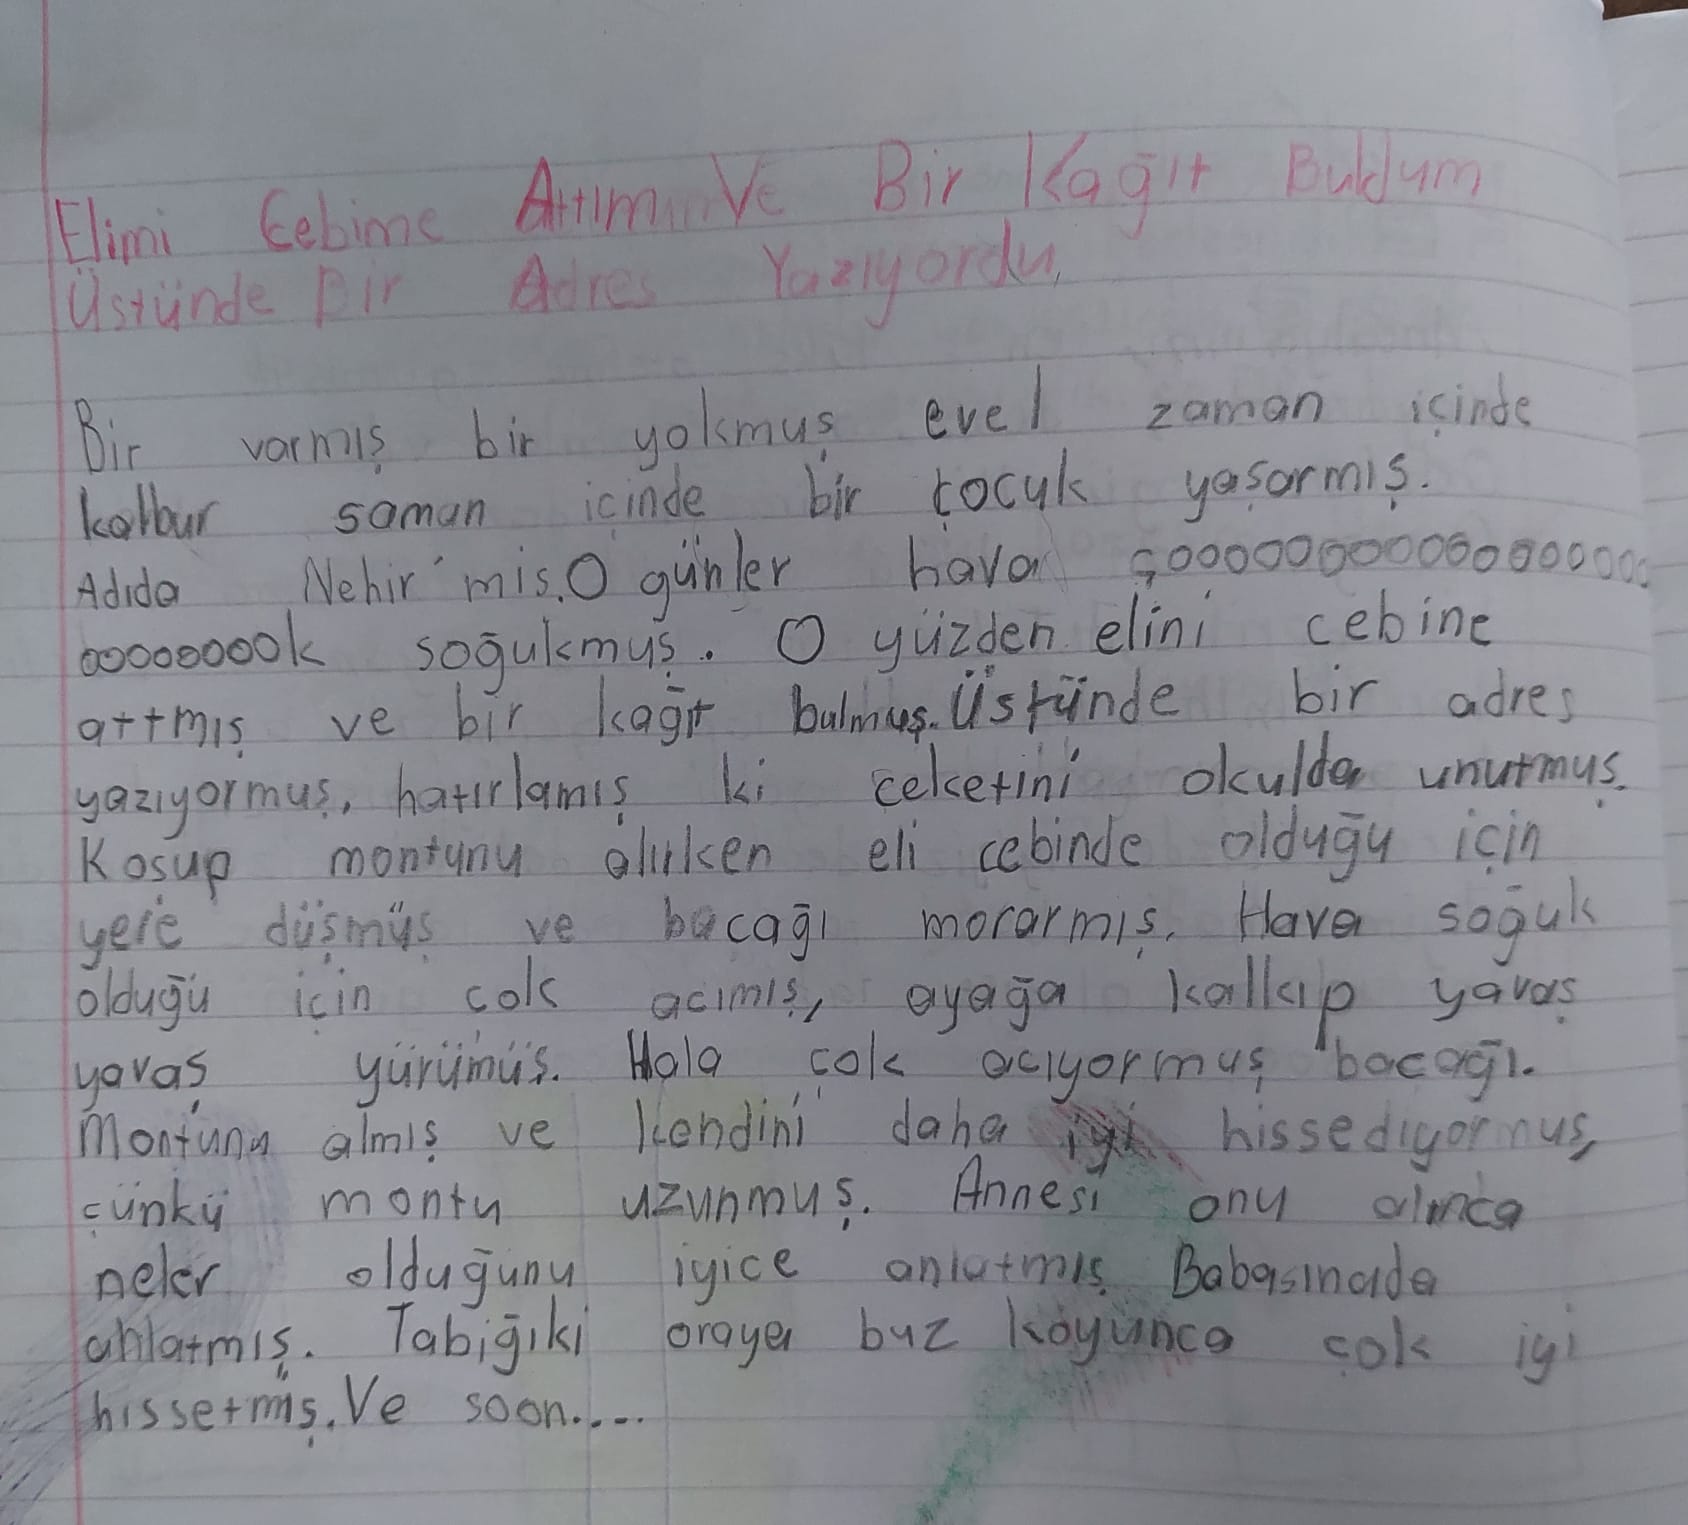 Elimi Cebime Attım Ve Bir Kağıt Buldum
Üstünde Bir Adres Yazıyordu,
Bir varmış bir yokmuş evel zaman içinde
kalbur saman içinde bir çocuk yaşarmış.
Adıda Nehir'miş. O günler hava çooooooooooooooooo
ooooooook soğukmuş. O yüzden elini cebine
attmış ve bir kağıt bulmuş. Üstünde bir adres
yazıyormuş, hatırlamış ki ceketini okulda unutmuş.
Koşup montunu alırken eli cebinde olduğu için
yere düşmüş ve bacağı morarmış. Hava soğuk
olduğu için cok acımış, ayağa kalkıp yavaş
yavaş yürümüş. Hala çok acıyormuş bacağı.
Montunu almış ve kendini daha iyi hissediyormuş,
çünkü montu uzunmuş. Annesi onu alınca
neler olduğunu iyice anlatmış Babasınada
anlatmış. Tabiğıki oraya buz koyunca çok iyi
hissetmiş. Ve soon....